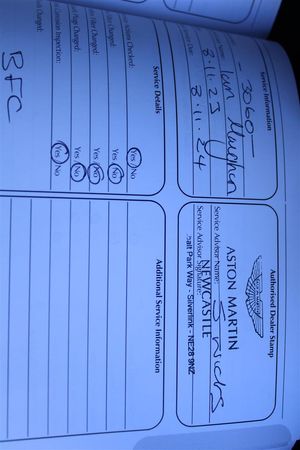 Service Information
- 3060 -
8.11.23
8.11.24
Authorised Dealer Stamp
ASTON MARTIN
Service Advisor Name:
NEWCASTLE
Service Advisor Signature:
alt Park Way - Silverlink - NE28 9NZ
Service Details
Checked: Yes No
Changed: Yes No
Filter Changed: Yes No
Plugs Changed: Yes No
Emission Inspection: Yes No
Changed:
BFC
Additional Service Information